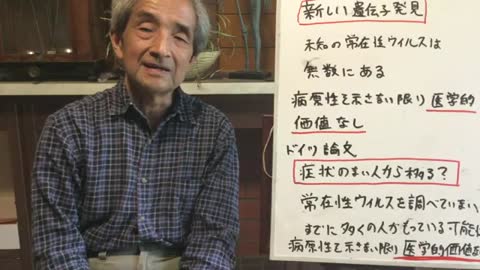 新しい遺伝子発見
未知の常在性ウイルスは
無数にある
病原性を示さない限り医学的
価値なし
ドイツ論文
症状のない人から移る?
常在性ウイルスを調べていない
すでに多くの人がもっている可能
病原性を示さない限り医学的価値な